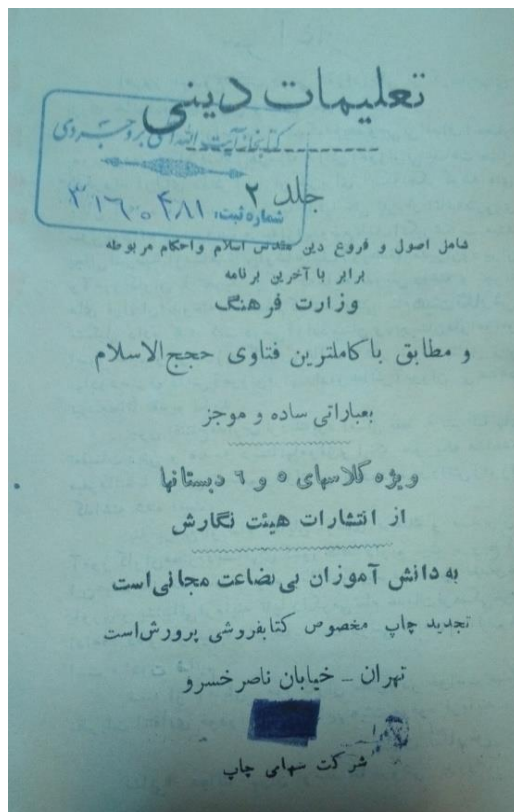 تعلیمات دینی
کتابخانه آیت الله بروجردی
جلد ۲
شماره ثبت:
شامل اصول و فروع دین مقدس اسلام و احکام مربوطه
برابر با آخرین برنامه
وزارت فرهنگ
و مطابق با کاملترین فتاوی حجج‌الاسلام
بعباراتی ساده و موجز
ویژه کلاسهای ۵ و ٦ دبستانها
از انتشارات هیئت نگارش
به دانش آموزان بی بضاعت مجانی است
تجدید چاپ مخصوص کتابفروشی پرورش است
تهران - خیابان ناصر خسرو
شرکت سهامی چاپ